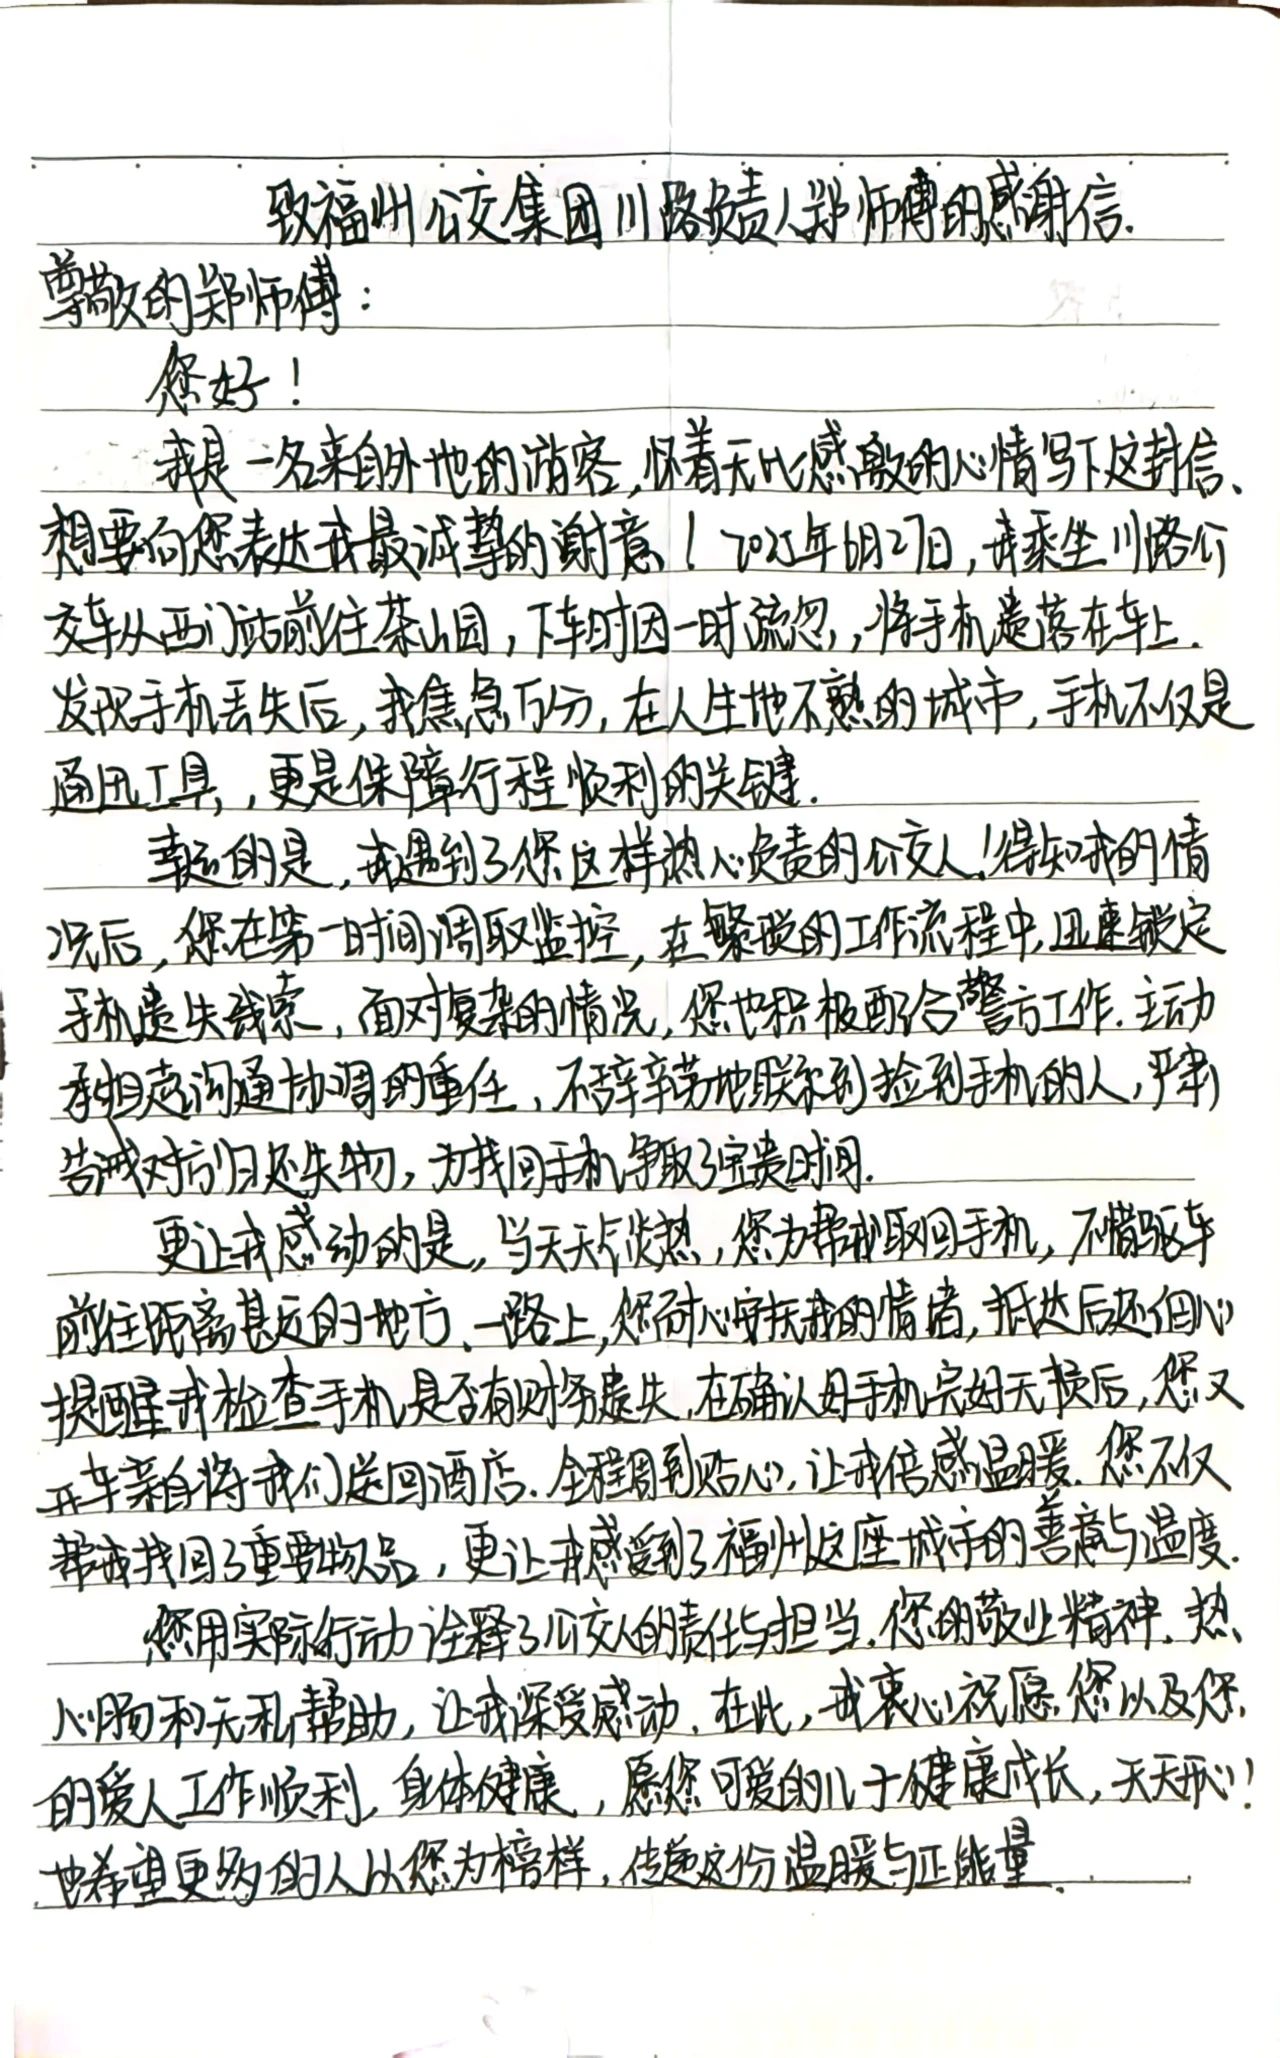 致福州公交集团111路负责人郑师傅的感谢信.
尊敬的郑师傅：
您好！
我是一名来自外地的游客,怀着无比感激的心情写下这封信、
想要向您表达我最诚挚的谢意！2025年6月27日,我乘坐111路公
交车从西门站前往茶山园,下车时因一时疏忽,将手机遗落在车上.
发现手机丢失后,我焦急万分,在人生地不熟的城市,手机不仅是
通讯工具,更是保障行程顺利的关键.
幸运的是,我遇到了您这样热心负责的公交人！得知我的情
况后,您在第一时间调取监控,在繁琐的工作流程中,迅速锁定
手机遗失线索,面对复杂的情况,您也积极配合警方工作.主动
承担起沟通协调的重任,不辞辛劳地联系到捡到手机的人,严肃
告诫对方归还失物,为找回手机争取了宝贵时间.
更让我感动的是,当天天气炎热,您为帮我取回手机,不惜驱车
前往距离甚远的地方.一路上,您耐心安抚我的情绪,抵达后还细心
提醒我检查手机是否有财务遗失.在确认好手机完好无损后,您又
开车亲自将我们送回酒店.全程周到贴心,让我倍感温暖.您不仅
帮我找回了重要物品,更让我感受到了福州这座城市的善意与温度.
您用实际行动诠释了公交人的责任与担当.您的敬业精神.热
心肠和无私帮助,让我深受感动.在此,我衷心祝愿您以及您
的爱人工作顺利,身体健康,愿您可爱的儿子健康成长,天天开心！
也希望更多的人以您为榜样,传递这份温暖与正能量.